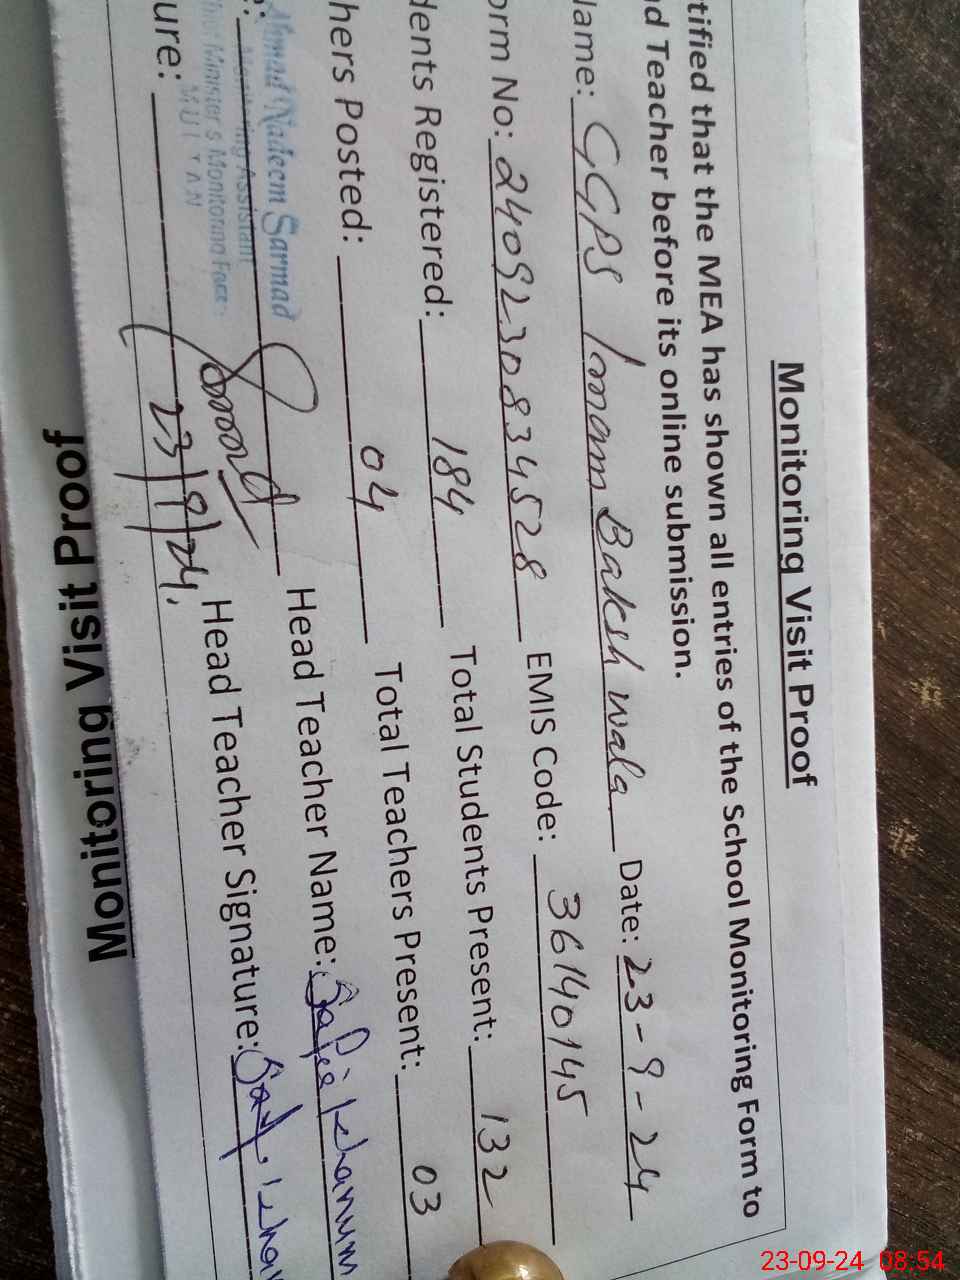 Monitoring Visit Proof
tified that the MEA has shown all entries of the School Monitoring Form to
d Teacher before its online submission.
lame: GGPS Imam Baksh wala Date: 23-9-24
orm No: 2409230834528 EMIS Code: 36140145
dents Registered: 184 Total Students Present: 132
hers Posted: 04 Total Teachers Present: 03
Ahmad Nadeem Sarmad
Monitoring Assistant
Minister's Monitoring Force
MULTAN
Head Teacher Name: Safia Khanum
ure: 23/9/24. Head Teacher Signature:
Monitoring Visit Proof
23-09-24 08:54